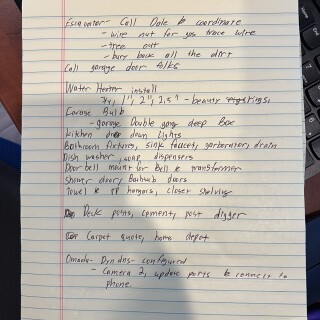 Escavator - Call Dale to coordinate
- wire nut for gas trace wire
- tree cut
- bury back all the dirt
Call garage door folks
Water Heater install
3/4, 1", 2", 2.5" - beauty rings
Garage Bulb
- garage Double gang deep Box
kitchen drop down lights
Bathroom fixtures, sink faucets, garborator, drain
Dish washer, soap dispensers
Door bell mount for Bell & transformer
Shower door, Bathtub doors
Towel & TP hangers, closet shelving
Deck posts, cement, post digger
Carpet quote, home depot
Omada - Dyn dns - configured
- Camera 2, update ports & connect to
phone.